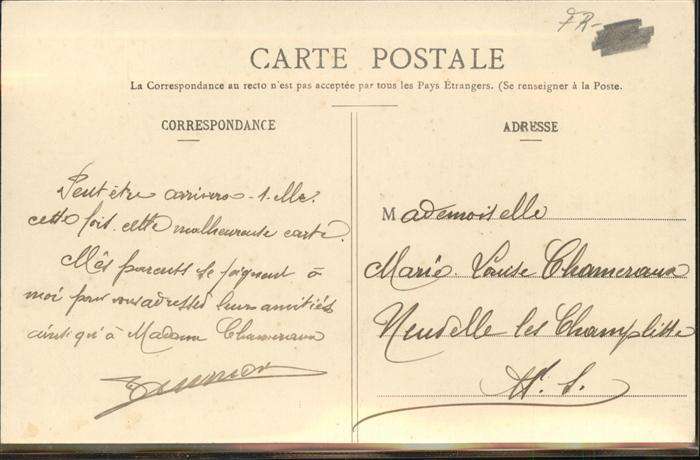 FR-
CARTE POSTALE
La Correspondance au recto n'est pas acceptée par tous les Pays Étrangers. (Se renseigner à la Poste.
CORRESPONDANCE
Peut être arrivera-t-elle
cette fois cette malheureuse carte.
Mes parents se joignent à
moi pour vous adresser leurs amitiés
ainsi qu'à Madame Chameroux
ADRESSE
Mademoiselle
Marie Louise Chameroux
Neuvelle les Champlitte
Hte S.